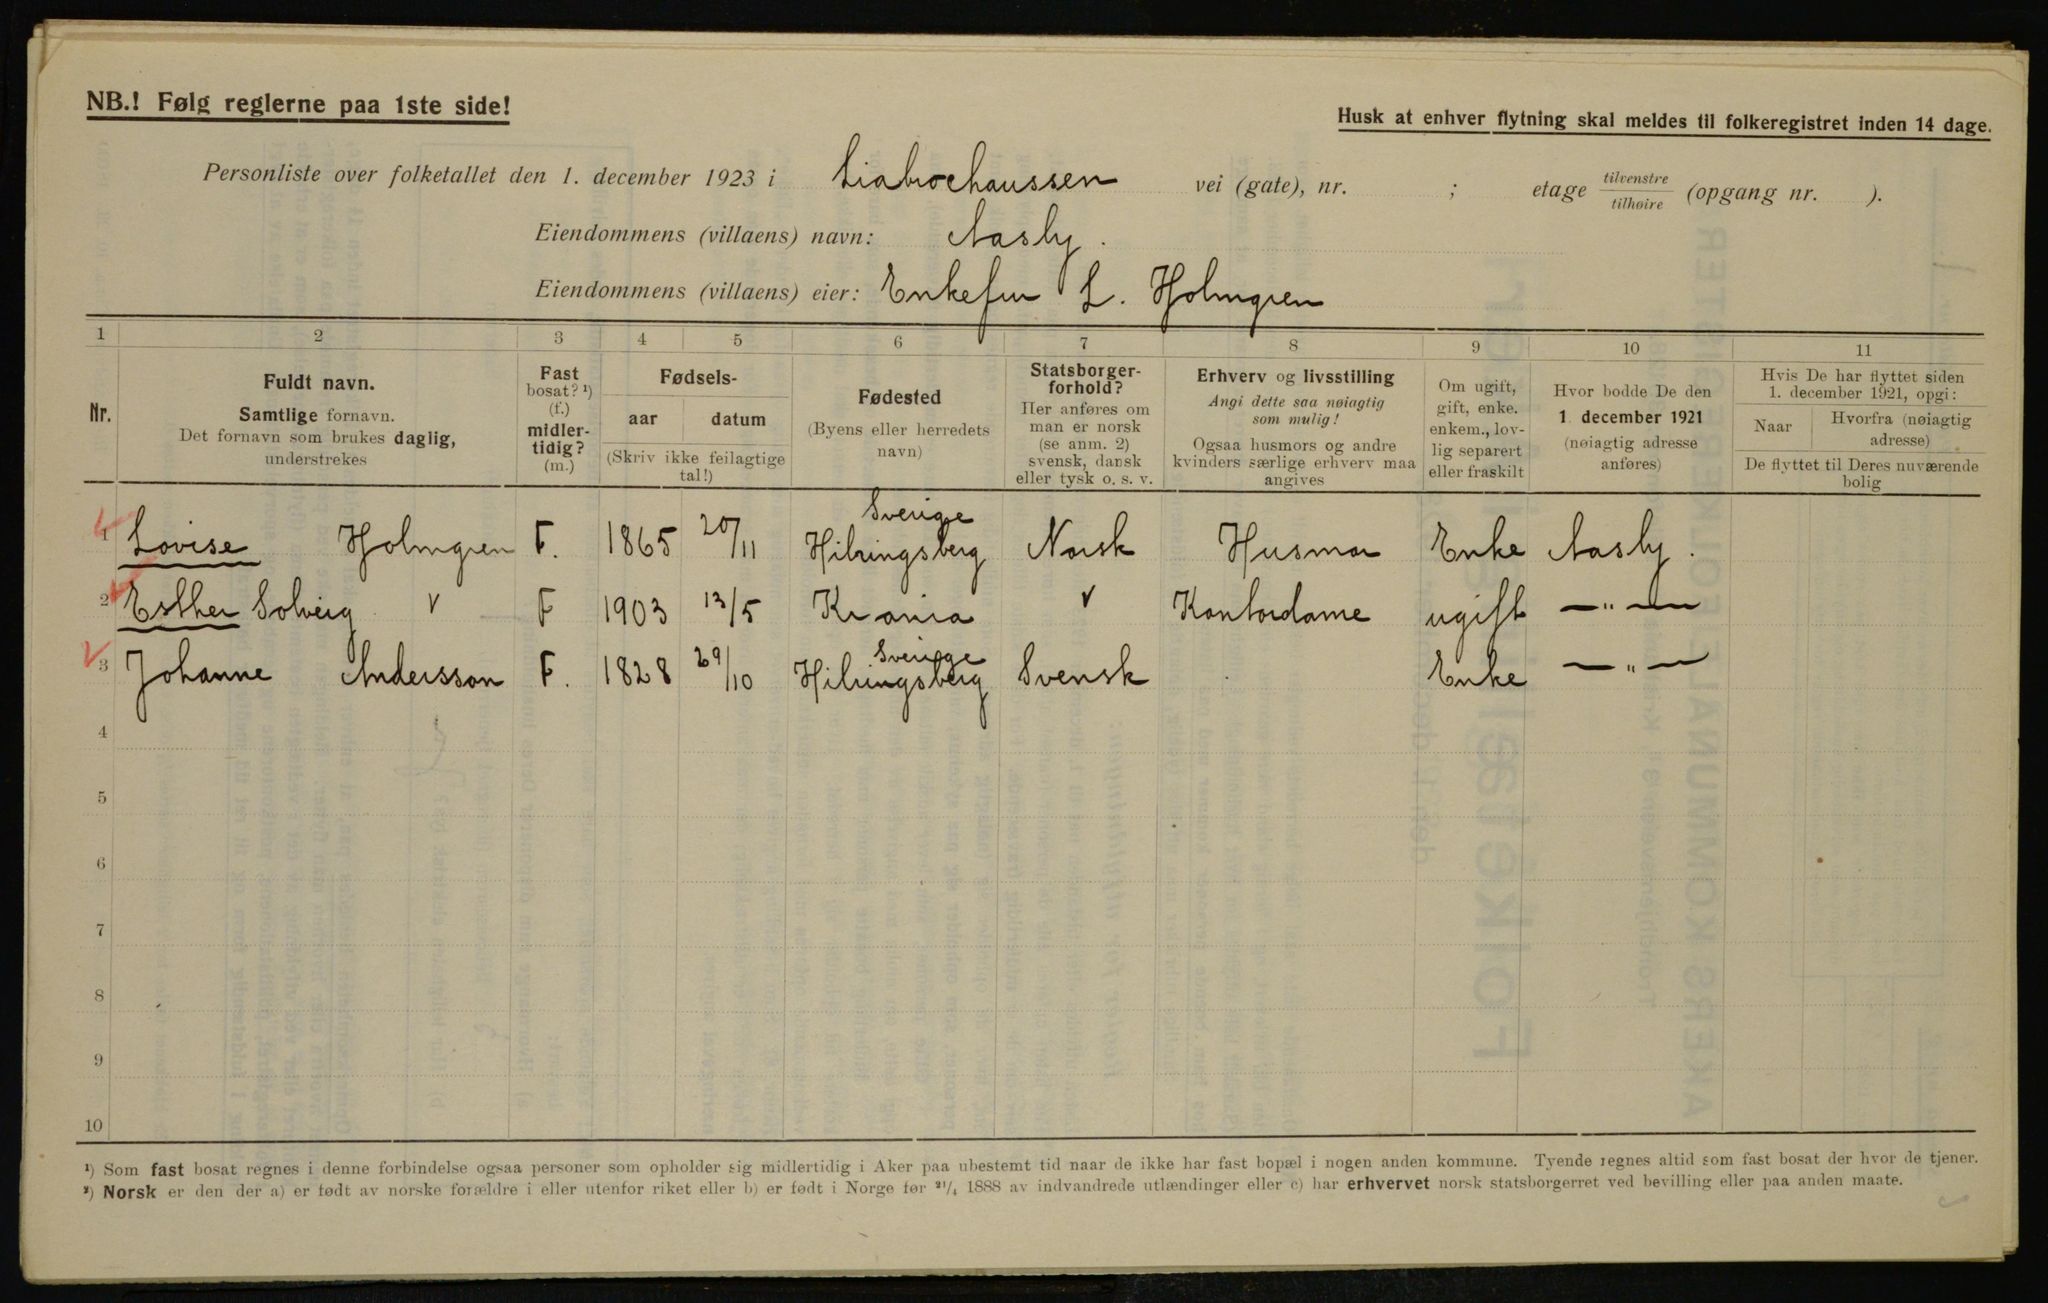 NB.! Følg reglerne paa 1ste side!
Husk at enhver flytning skal meldes til folkeregistret inden 14 dage.
Personliste over folketallet den 1. december 1923 i Liabrochaussen vei (gate), nr. ; etage tilvenstre/tilhøire (opgang nr. ).
Eiendommens (villaens) navn: Aasly.
Eiendommens (villaens) eier: Enkefru L. Holmgren
1 2 3 4 5 6 7 8 9 10 11
Nr.
Fuldt navn.
Samtlige fornavn.
Det fornavn som brukes daglig,
understrekes
Fast
bosat? ¹)
(f.)
midler-
tidig?
(m.)
Fødsels-
aar datum
(Skriv ikke feilagtige
tal!)
Fødested
(Byens eller herredets
navn)
Statsborger-
forhold?
Her anføres om
man er norsk
(se anm. 2)
svensk, dansk
eller tysk o. s. v.
Erhverv og livsstilling
Angi dette saa nøiagtig
som mulig!
Ogsaa husmors og andre
kvinders særlige erhverv maa
angives
Om ugift,
gift, enke.
enkem., lov-
lig separert
eller fraskilt
Hvor bodde De den
1. december 1921
(nøiagtig adresse
anføres)
Hvis De har flyttet siden
1. december 1921, opgi:
Naar Hvorfra (nøiagtig
adresse)
De flyttet til Deres nuværende
bolig
Sverige
1 Lovise Holmgren F. 1865 20/11 Hilringsberg Norsk Husmor Enke Aasly.
2 Esther Solveig v F 1903 13/5 Krania v Kontordame ugift — „ —
Sverige
3 Johanne Andersson F. 1828 29/10 Hilringsberg Svensk Enke — „ —
4
5
6
7
8
9
10
¹) Som fast bosat regnes i denne forbindelse ogsaa personer som opholder sig midlertidig i Aker paa ubestemt tid naar de ikke har fast bopæl i nogen anden kommune. Tyende regnes altid som fast bosat der hvor de tjener.
²) Norsk er den der a) er født av norske forældre i eller utenfor riket eller b) er født i Norge før ²¹/₄ 1888 av indvandrede utlændinger eller c) har erhvervet norsk statsborgerret ved bevilling eller paa anden maate.